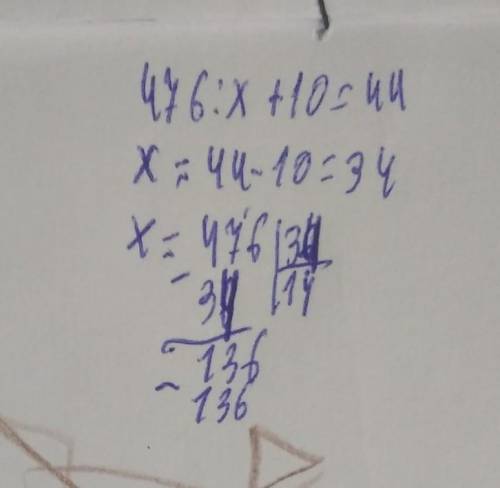 476:x+10=44
x=44-10=34
x=476|34
-34|14
136
-136